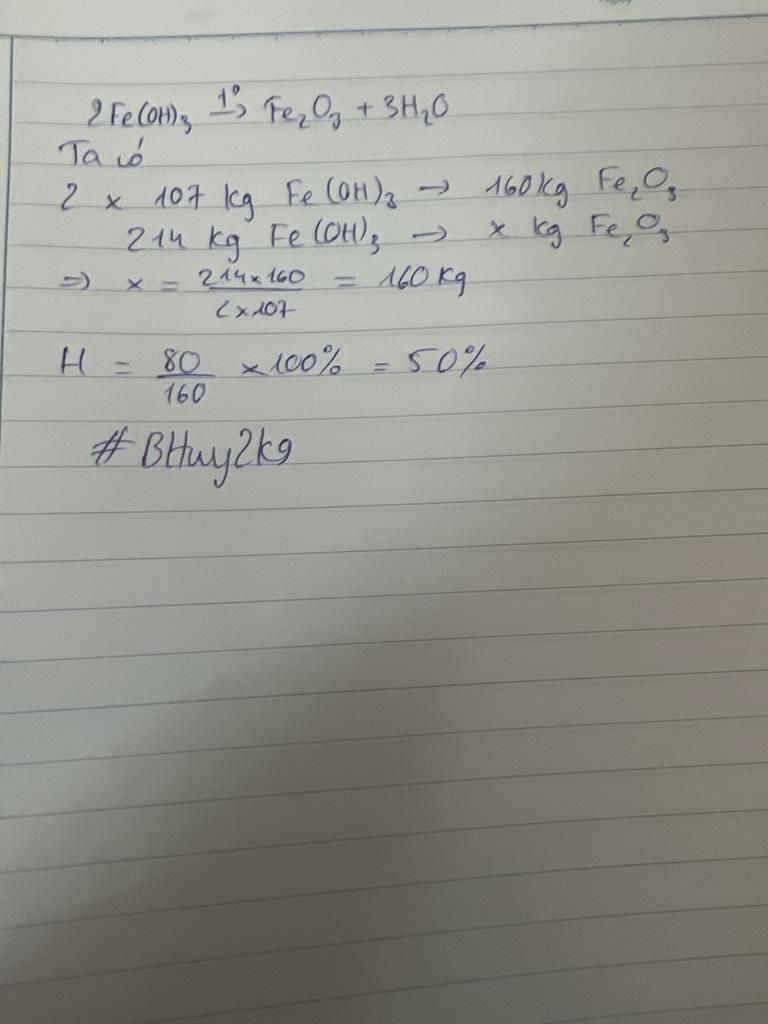 2Fe(OH)₃ →(t°) Fe₂O₃ + 3H₂O
Ta có
2 x 107 kg Fe(OH)₃ → 160kg Fe₂O₃
214 kg Fe(OH)₃ → x kg Fe₂O₃
=> x = (214x160)/(2x107) = 160 Kg
H = 80/160 x100% = 50%
# BHuy2kg